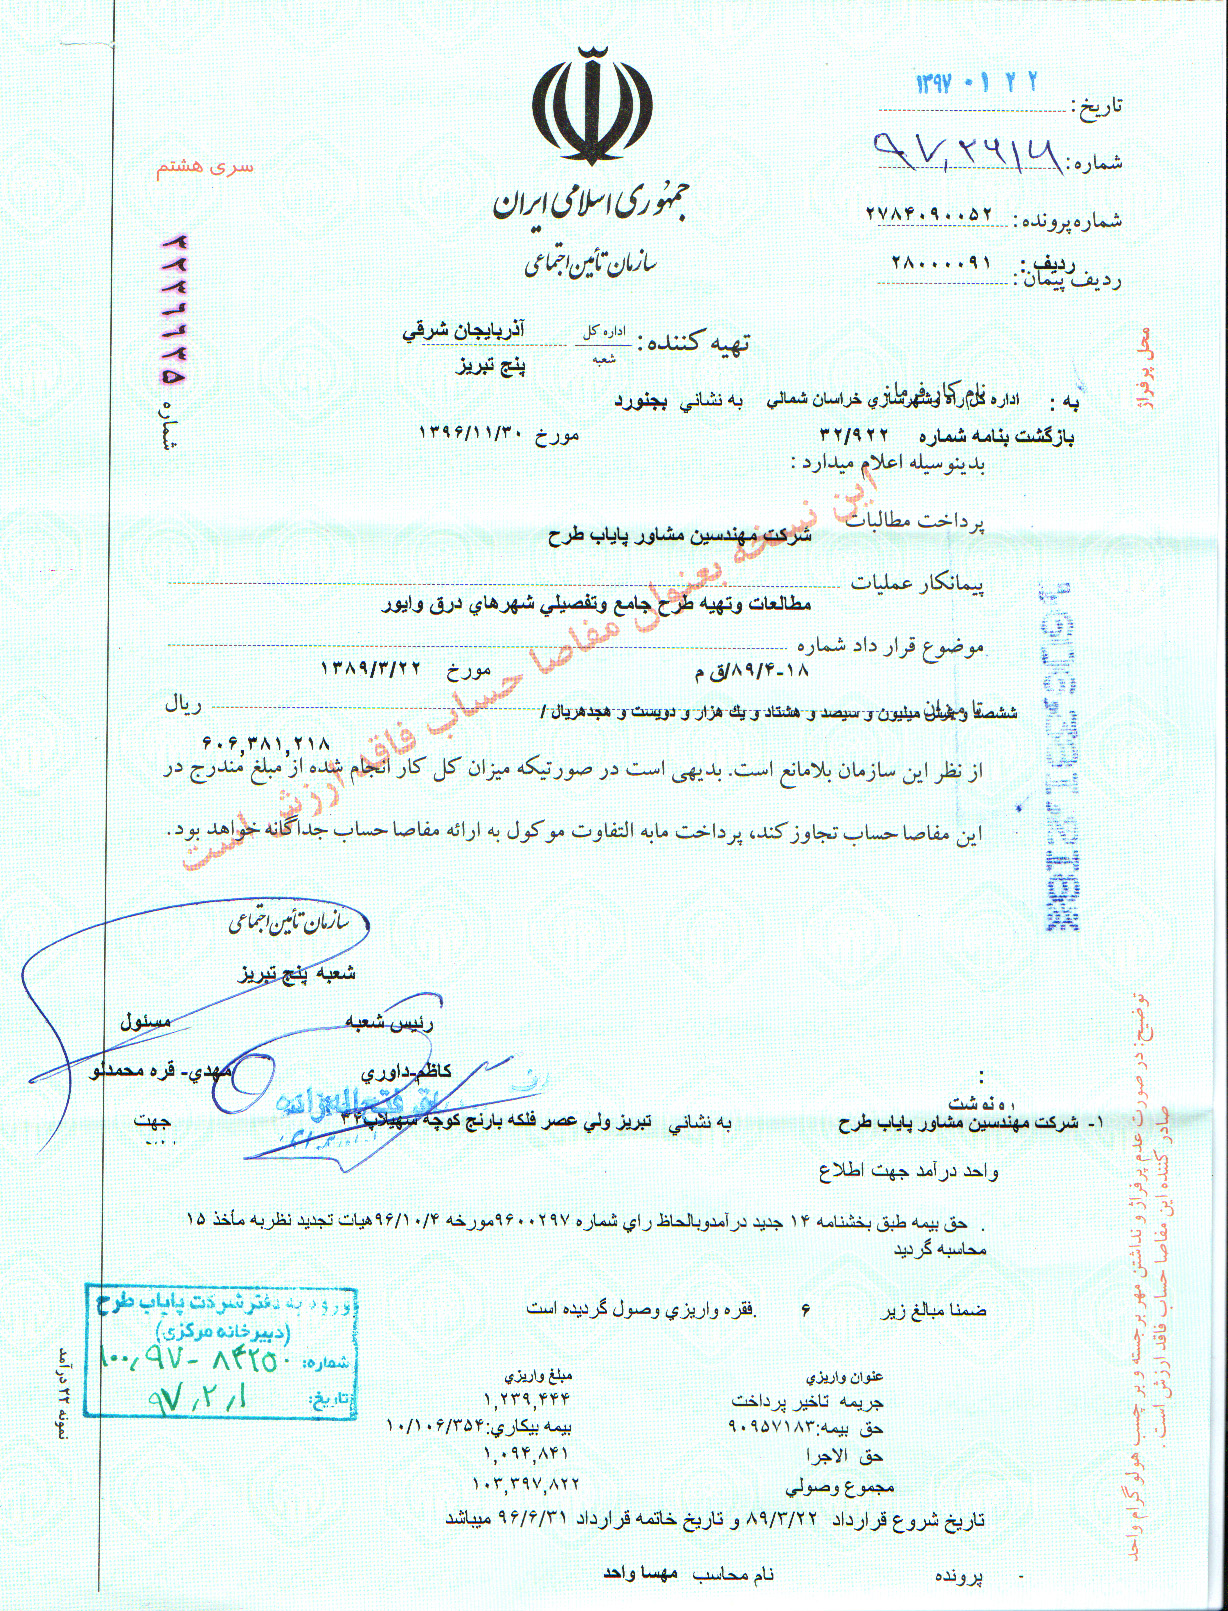 ۱۳۹۷ ۰۱ ۲۲
تاریخ :
شماره :
شماره پرونده : ۲۷۸۴۰۹۰۰۵۲
ردیف : ۲۸۰۰۰۰۹۱
ردیف پیمان :
سری هشتم
شماره ۲۲۳۶۶۳۵
جمهوری اسلامی ایران
سازمان تأمین اجتماعی
تهیه کننده : اداره کل آذربایجان شرقي
شعبه پنج تبریز
محل پرفراژ
نام کارفرما
به : اداره کل راه وشهرسازي خراسان شمالي به نشاني بجنورد
بازگشت بنامه شماره ۳۲/۹۲۲ مورخ ۱۳۹۶/۱۱/۳۰
بدینوسیله اعلام میدارد :
این نسخه بعنوان مفاصا حساب فاقد ارزش است
پرداخت مطالبات
شرکت مهندسین مشاور پایاب طرح
پیمانکار عملیات
مطالعات وتهیه طرح جامع وتفصیلي شهرهاي درق وایور
موضوع قرار داد شماره
۱۸-۸۹/۴/ق م مورخ ۱۳۸۹/۳/۲۲
تا میزان ششصد و شش میلیون و سیصد و هشتاد و یك هزار و دویست و هجدهریال / ریال
۶۰۶,۳۸۱,۲۱۸
از نظر این سازمان بلامانع است. بدیهی است در صورتیکه میزان کل کار انجام شده از مبلغ مندرج در
این مفاصا حساب تجاوز کند، پرداخت مابه التفاوت موکول به ارائه مفاصا حساب جداگانه خواهد بود.
سازمان تأمین اجتماعی
شعبه پنج تبریز
رئیس شعبه مسئول
کاظم-داوري مهدي- قره محمدلو
:
رونوشت
۱- شرکت مهندسین مشاور پایاب طرح به نشاني تبریز ولي عصر فلکه بارنج کوچه سهیلاپ۳۲ جهت
واحد درآمد جهت اطلاع
. حق بیمه طبق بخشنامه ۱۴ جدید درآمدوبالحاظ راي شماره ۹۶۰۰۲۹۷مورخه ۹۶/۱۰/۴هیات تجدید نظربه مأخذ ۱۵
محاسبه گردید
ضمنا مبالغ زیر ۶ .فقره واریزي وصول گردیده است
عنوان واریزي مبلغ واریزي
جریمه تاخیر پرداخت ۱,۲۳۹,۴۴۴
حق بیمه:۹۰۹۵۷۱۸۳ بیمه بیکاري:۱۰/۱۰۶/۳۵۴
حق الاجرا ۱,۰۹۴,۸۴۱
مجموع وصولي ۱۰۳,۳۹۷,۸۲۲
تاریخ شروع قرارداد ۸۹/۳/۲۲ و تاریخ خاتمه قرارداد ۹۶/۶/۳۱ میباشد
- پرونده نام محاسب مهسا واحد
ورود به دفتر شرکت پایاب طرح
(دبیرخانه مرکزی)
شماره: ۱۰۰٫۹۷-۸۴۲۵۰
تاریخ: ۹۷٫۲٫۱
نمونه ۲۲ درآمد
توضیح: در صورت عدم پرفراژ و نداشتن مهر برجسته و برچسب هولوگرام واحد
صادر کننده این مفاصا حساب فاقد ارزش است .